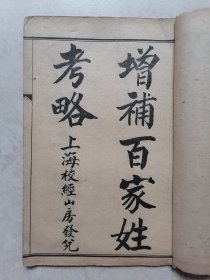 增補百家姓
考略
上海校經山房發兌